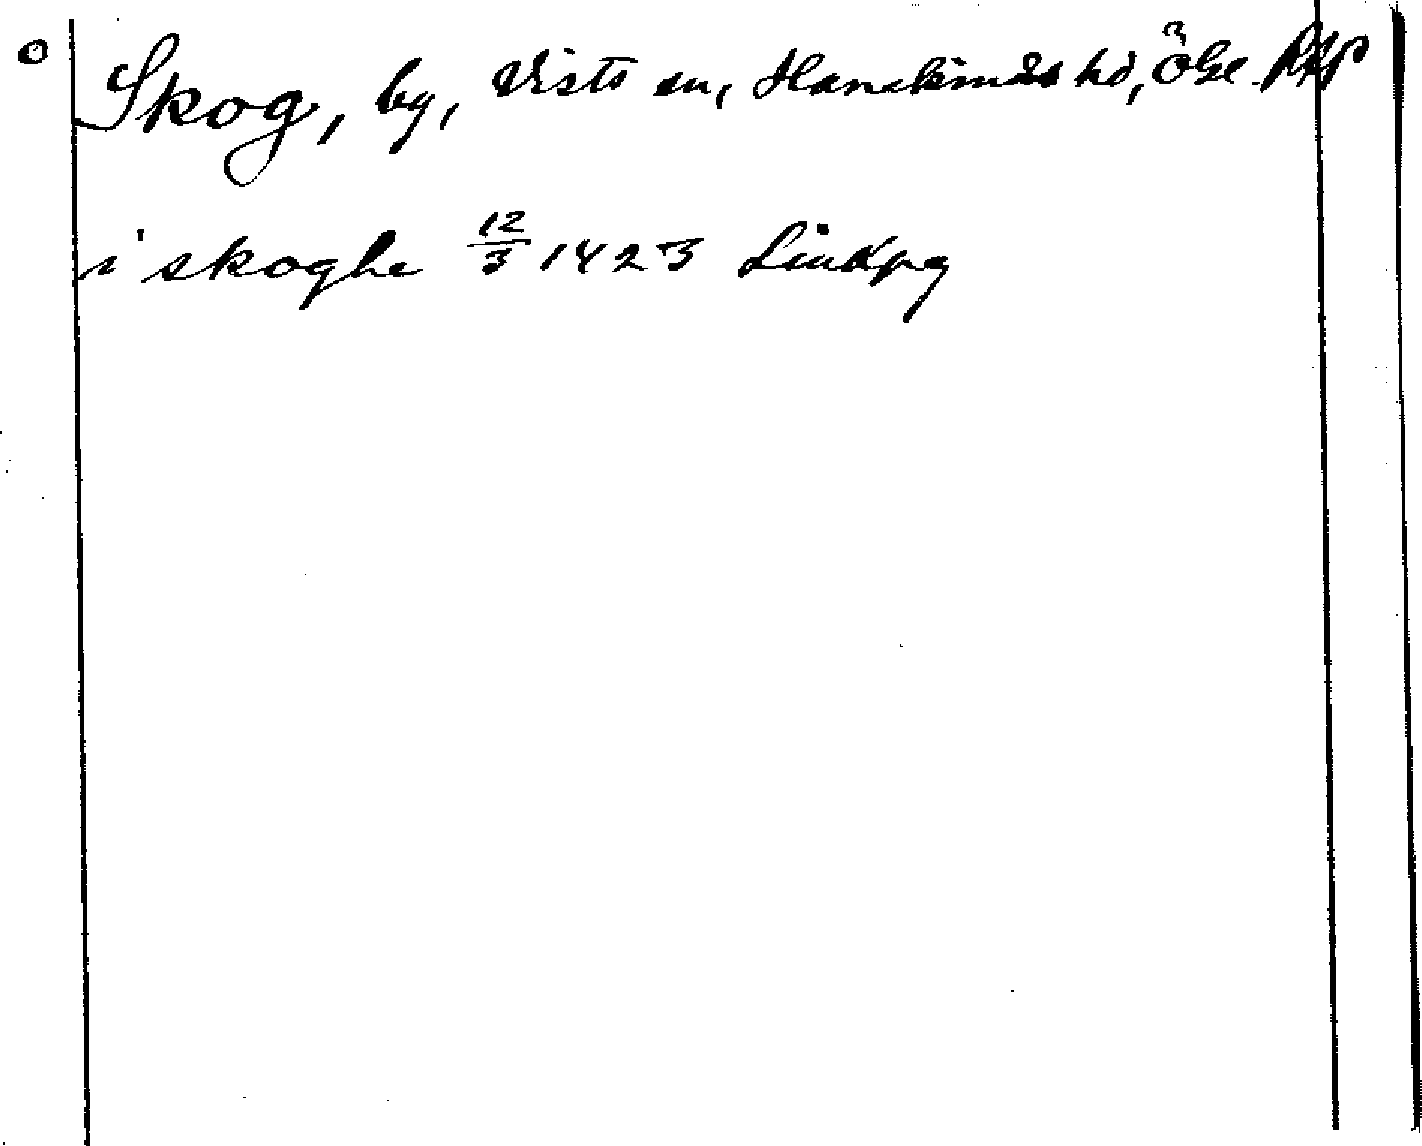 o Skog, by, Vists sn, Hanekinds hd, Ögl. Rpp
i skoghe 12/3 1423 Linkpg